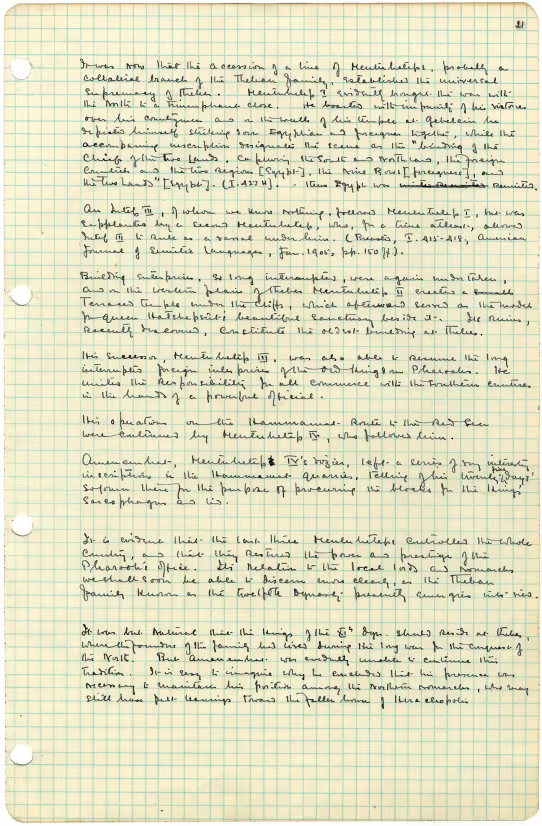 21
It was now that the accession of a line of Mentuhoteps, probably a
collateral branch of the Theban family, established the universal
supremacy of Thebes. Mentuhotep I evidently brought the war with
the North to a triumphant close. He boasted with impunity of his victories
over his countrymen and on the walls of his temple at Gebelein he
depicted himself striking down Egyptian and foreigner together, while the
accompanying inscription designates the scene as the "binding of the
Chiefs of the two Lands, capturing the South and Northland, the foreign
Countries and the two Regions [Egypt], the Nine Bows [foreigners], and
the two Lands" [Egypt]. (I. 423 H). Thus Egypt was reunited.
An Intef III, of whom we know nothing, followed Mentuhotep I, but was
supplanted by a second Mentuhotep, who, for a time at least, allowed
Intef III to rule as a vassal under him. (Breasted, I. 415-418, American
Journal of Semitic Languages, Jan. 1905, pp. 150 ff).
Building enterprises, so long interrupted, were again undertaken,
and on the western plain of Thebes Mentuhotep II erected a small
Terraced temple under the cliffs, which afterward served as the model
for Queen Hatshepsut's beautiful Sanctuary beside it. Its ruins,
recently discovered, constitute the oldest building at Thebes.
His Successor, Mentuhotep III, was also able to resume the long
interrupted foreign enterprises of the Old Kingdom Pharaohs. He
unites the responsibility for all commerce with the Southern countries
in the hands of a powerful official.
His operations on the Hammamat Route to the Red Sea
were continued by Mentuhotep IV, who followed him.
Amenemhet, Mentuhotep IV's vizier, left a series of very interesting
inscriptions in the Hammamat quarries, telling of his twenty five days'
sojourn there for the purpose of procuring the blocks for the King's
Sarcophagus and lid.
It is evident that the last three Mentuhoteps controlled the whole
Country, and that they restored the power and prestige of the
Pharaoh's office. Its relation to the local lords and nomarchs
we shall soon be able to discern more clearly, as the Theban
family known as the twelfth Dynasty presently emerges into view.
It was but natural that the Kings of the XIth Dyn. should reside at Thebes,
where the founders of the family had lived during the long war for the conquest of
the North. But Amenemhet was evidently unable to continue this
tradition. It is easy to imagine why he concluded that his presence was
necessary to maintain his position among the Northern nomarchs, who may
still have felt leanings toward the fallen house of Heracleopolis